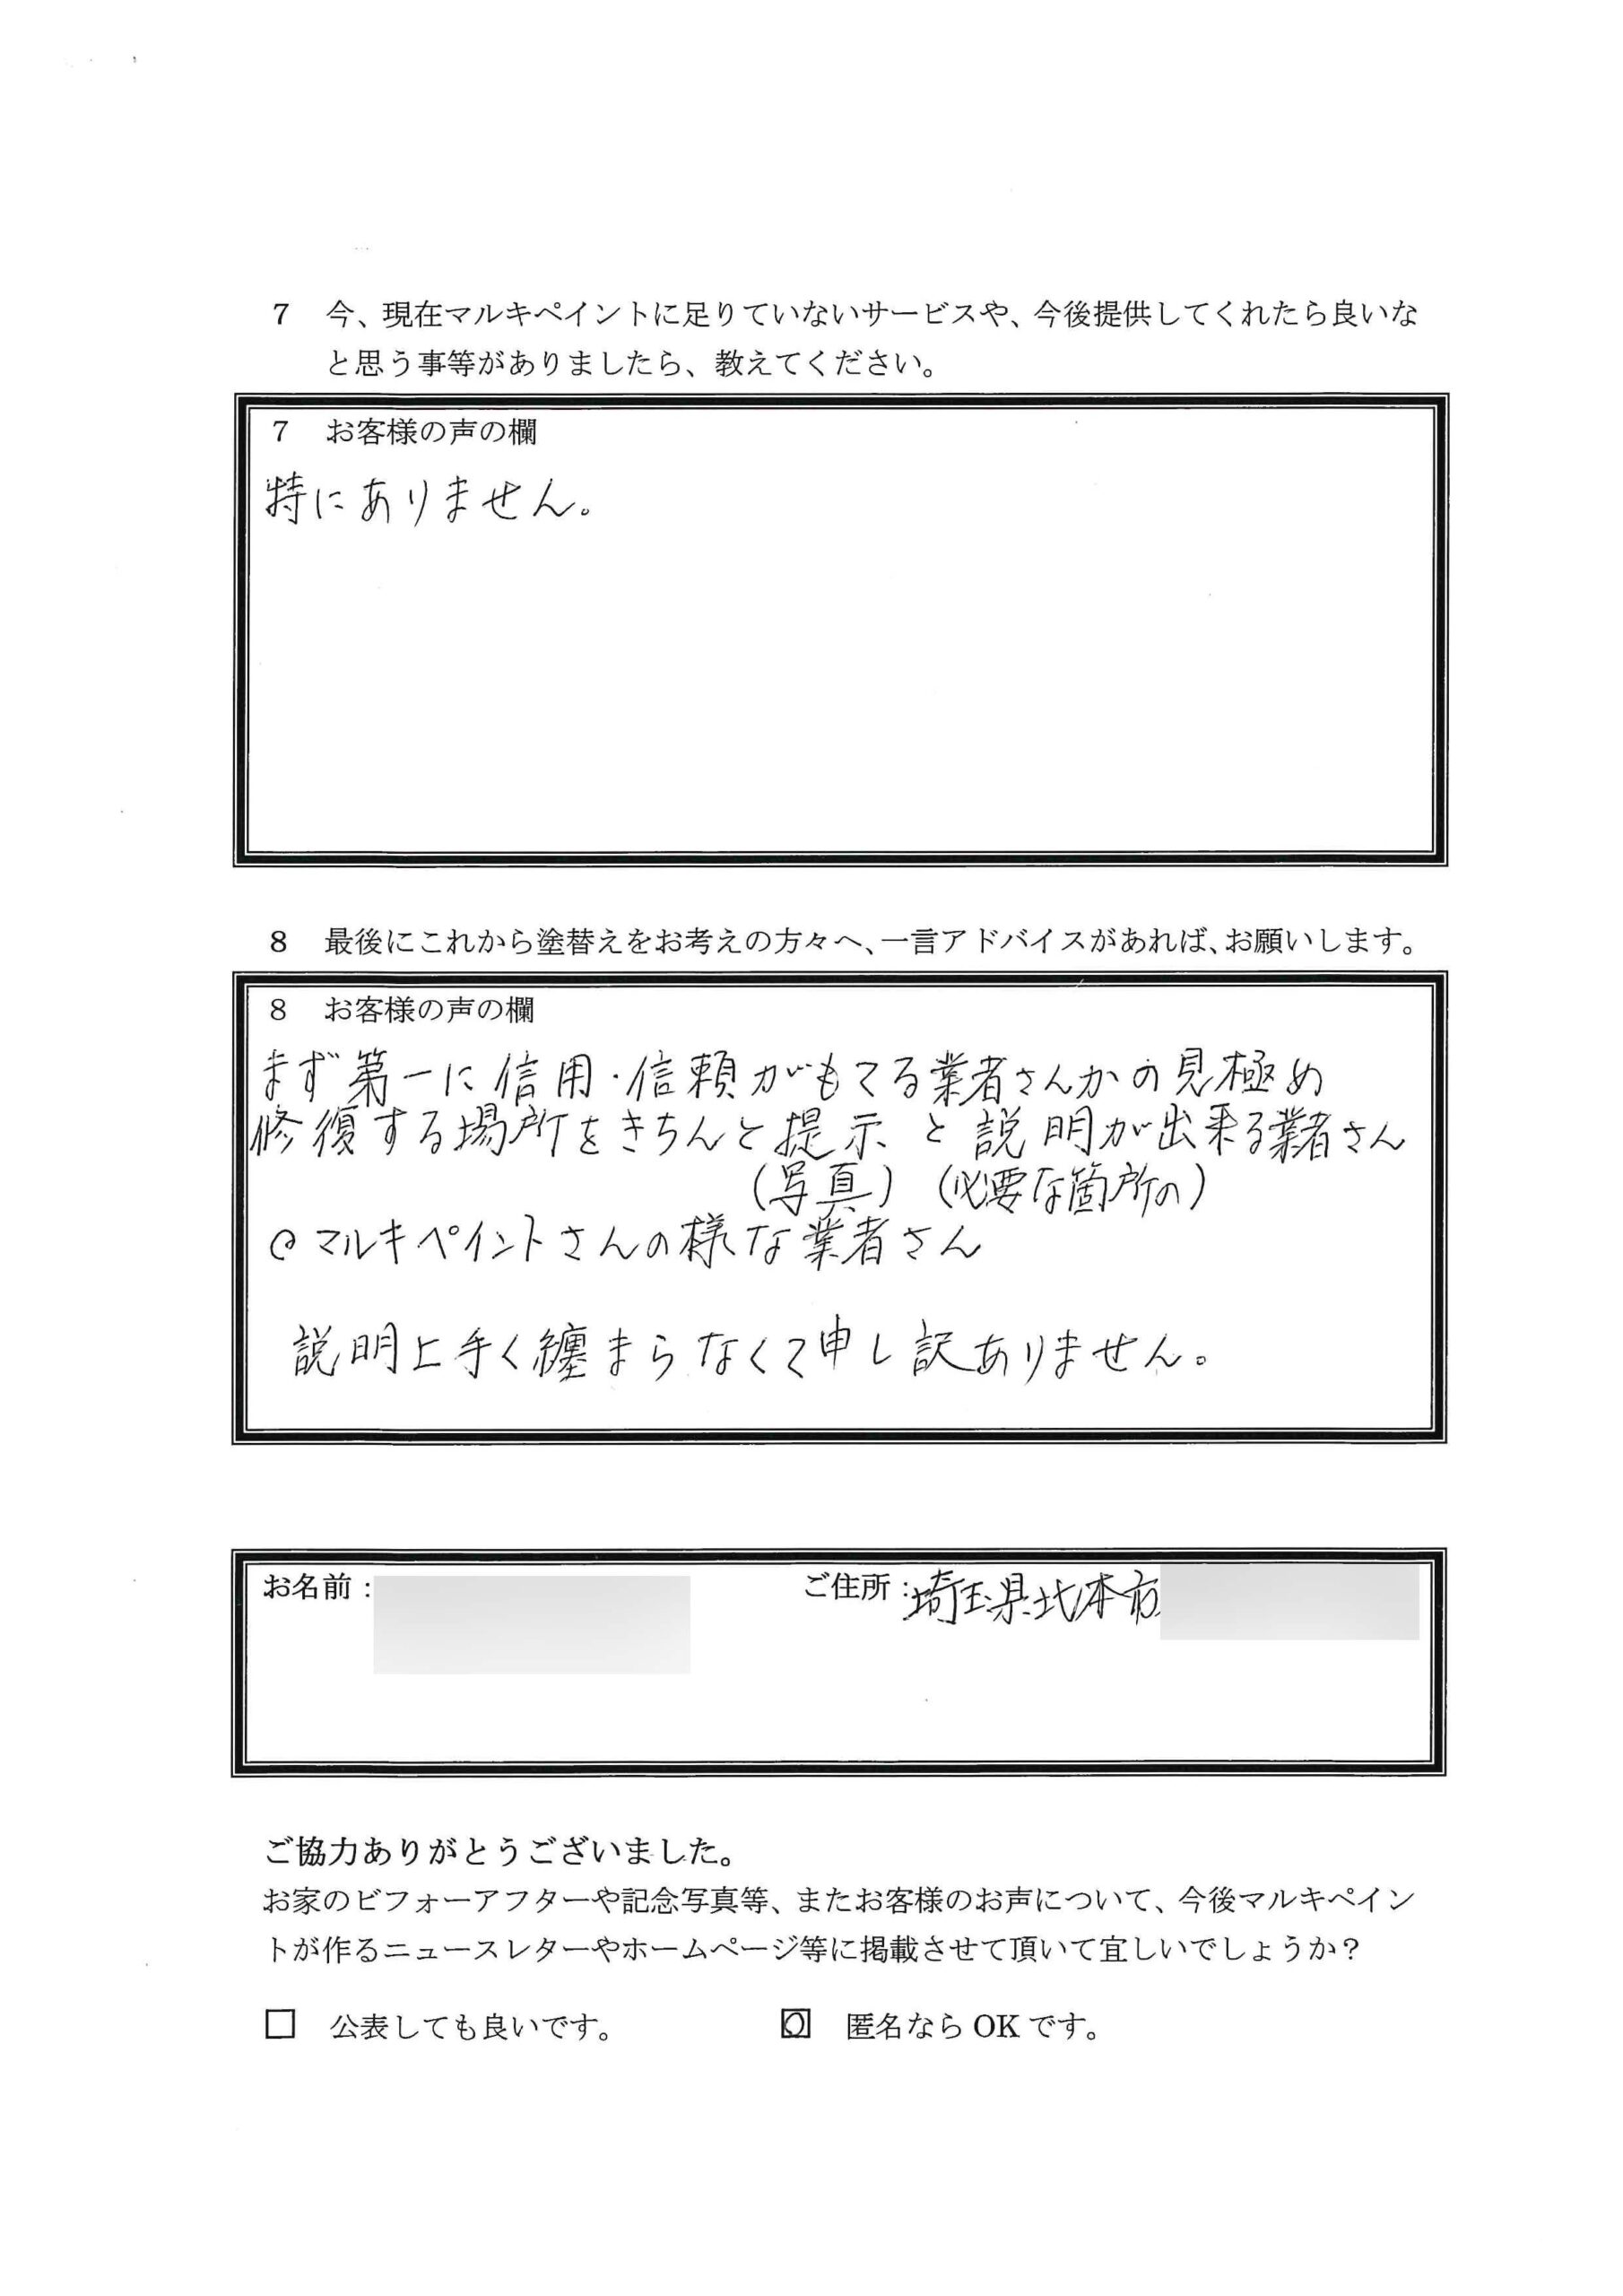 7 今、現在マルキペイントに足りていないサービスや、今後提供してくれたら良いな
と思う事等がありましたら、教えてください。
7 お客様の声の欄
特にありません。
8 最後にこれから塗替えをお考えの方々へ、一言アドバイスがあれば、お願いします。
8 お客様の声の欄
まず第一に信用・信頼がもてる業者さんかの見極め
修復する場所をきちんと提示と説明が出来る業者さん
(写真) (必要な箇所の)
○マルキペイントさんの様な業者さん
説明上手く纏まらなくて申し訳ありません。
お名前: ご住所:埼玉県北本市
ご協力ありがとうございました。
お家のビフォーアフターや記念写真等、またお客様のお声について、今後マルキペイン
トが作るニュースレターやホームページ等に掲載させて頂いて宜しいでしょうか?
□ 公表しても良いです。 ☑ 匿名なら OK です。